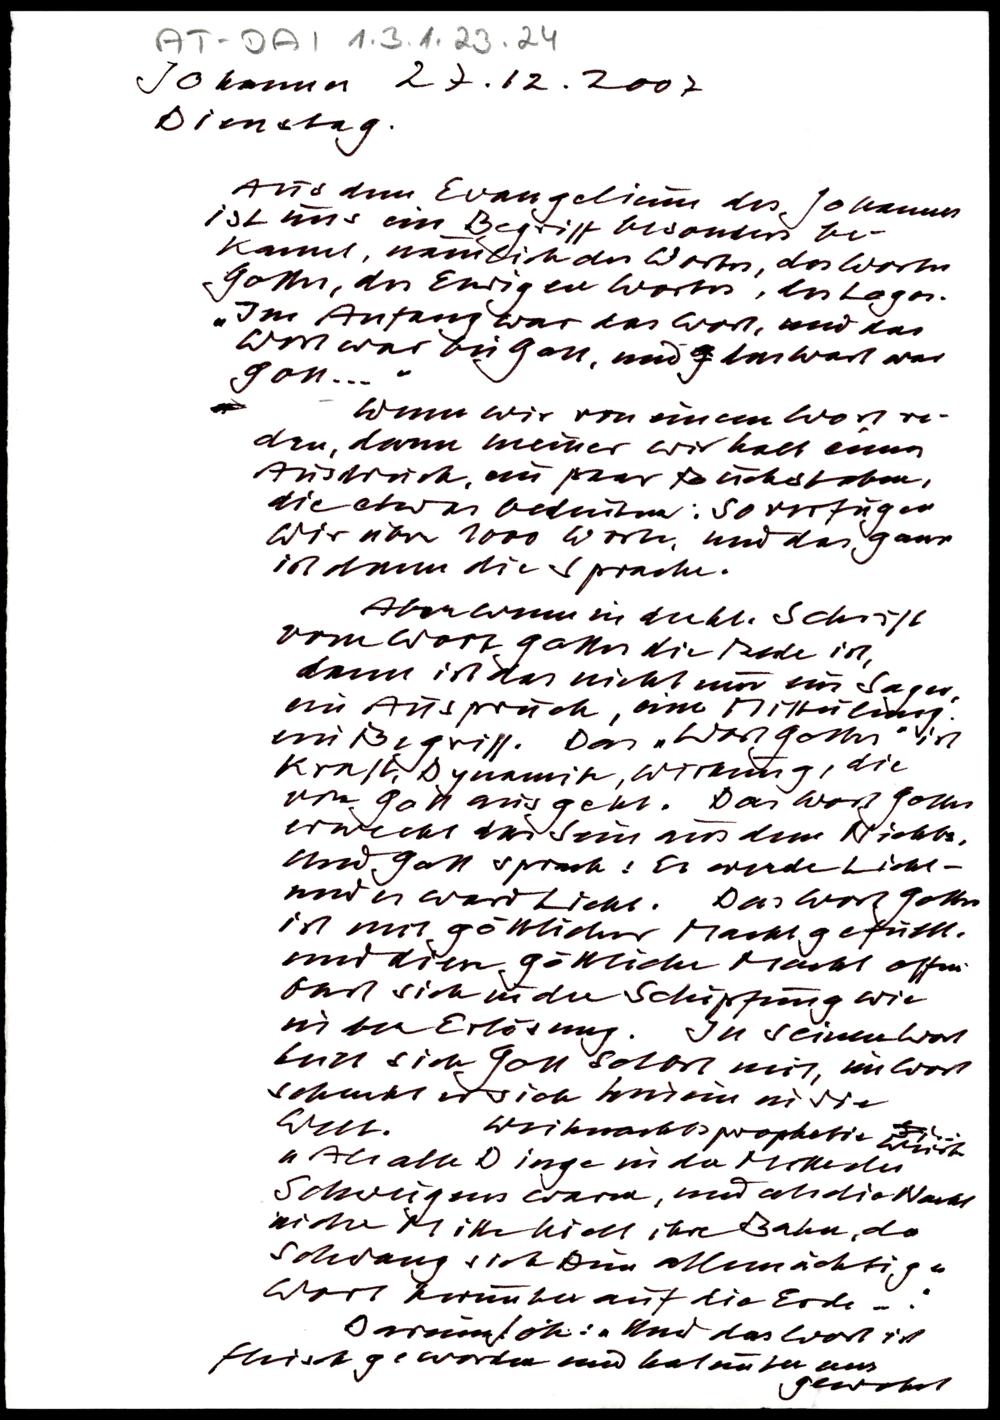 AT-DAI 1.3.1.23.24
Johannes 27.12.2007
Dienstag.
Aus dem Evangelium des Johannes
ist uns ein Begriff besonders be-
kannt, nämlich des Wortes, des Wortes
Gottes, des Ewigen Wortes, des Logos.
"Im Anfang war das Wort, und das
Wort war bei Gott, und das Wort war
Gott..."
Wenn wir von einem Wort re-
den, dann meinen wir halt einen
Ausdruck, ein paar Buchstaben,
die etwas bedeuten: So verfügen
wir über 1000 Worte, und das ganze
ist dann die Sprache.
Aber wenn in der hl. Schrift
vom Wort Gottes die Rede ist,
dann ist das nicht nur ein Sagen,
ein Ausspruch, eine Mitteilung.
ein Begriff. Das "Wort Gottes" ist
Kraft, Dynamik, Wirkung, die
von Gott ausgeht. Das Wort Gottes
erweckt das Sein aus dem Nichts.
Und Gott sprach: Es werde Licht -
und es ward Licht. Das Wort Gottes
ist mit göttlicher Macht gefüllt.
und diese göttliche Macht offen-
bart sich in der Schöpfung wie
in der Erlösung. In seinem Wort
teilt sich Gott selbst mit, im Wort
schenkt er sich herein in die
Welt. Weihnachtsprophetie
"Als alle Dinge in der Mitte des
Schweigens waren, und als die Nacht
in der Mitte hielt ihre Bahn, da
schwang sich Dein allmächtiges
Wort herunter auf die Erde -."
Darum Joh: "Und das Wort ist
Fleisch geworden und hat unter uns
gewohnt